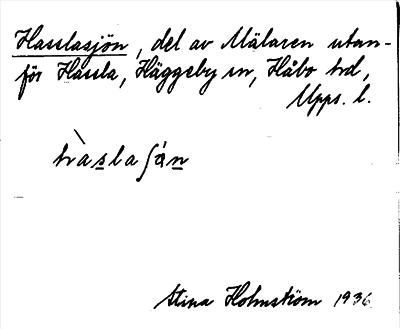 Hasslasjön, del av Mälaren utan-
för Hassla, Häggeby sn, Håbo hd,
Upps. l.
hàslaʃön
Stina Holmström 1936